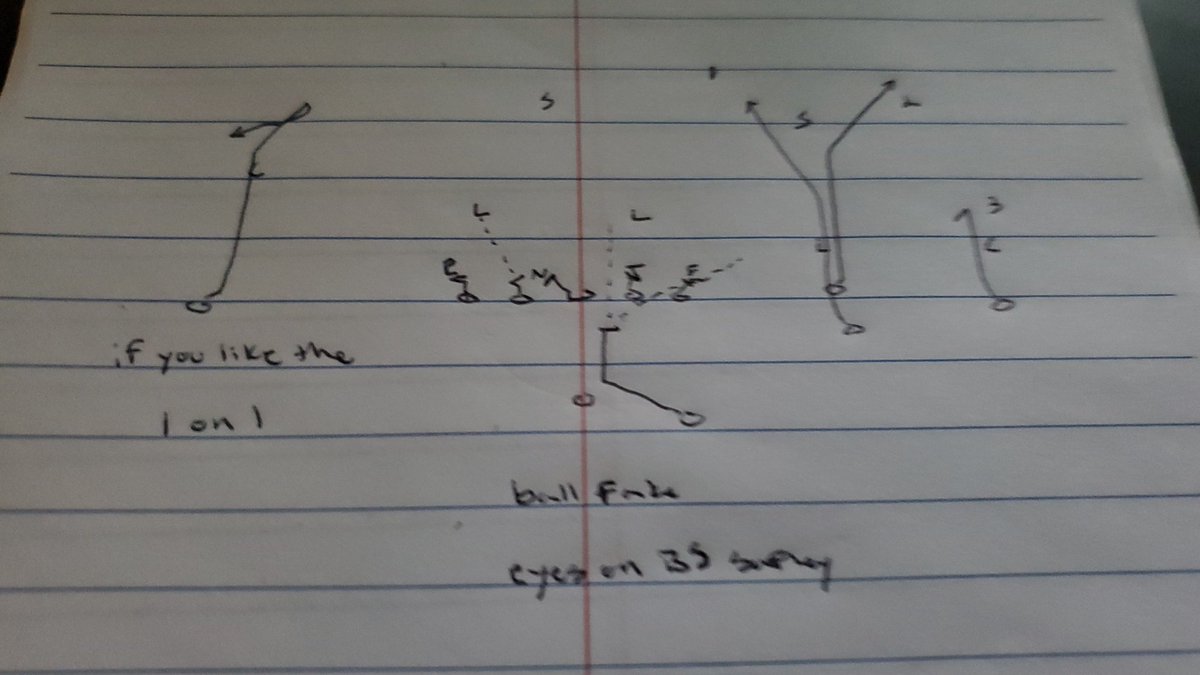 S S
L L
N
if you like the
1 on 1
ball Fake
eyes on BS safety